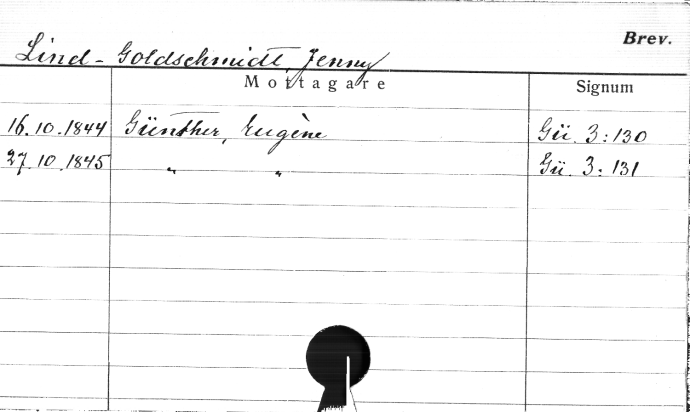 Brev.
Lind-Goldschmidt, Jenny
Mottagare Signum
16.10.1844 Günther, Eugène Gü. 3:130
27.10.1845 " " Gü. 3:131